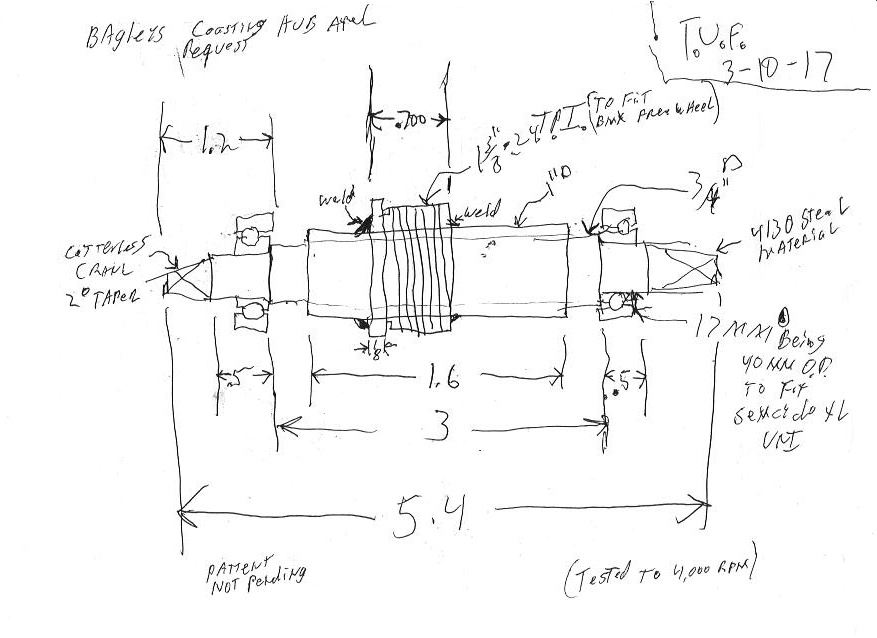 BAgleys Coasting HUB Axel
Request
T.U.F.
3-10-17
1.2
.700
1 3/8" • 24 T.P.I. (TO FiT
BMX FreewHeel)
weld
weld
1"D
3/4"D
4130 Steal
MATERIAL
COTTERLESS
CRANK
2° TAPER
1/8
17 MM
Being
40 MM O.D.
TO FiT
UNI
.5
1.6
.5
3
5.4
PATTENT
NOT Pending
(Tested To 4,000 RPM)